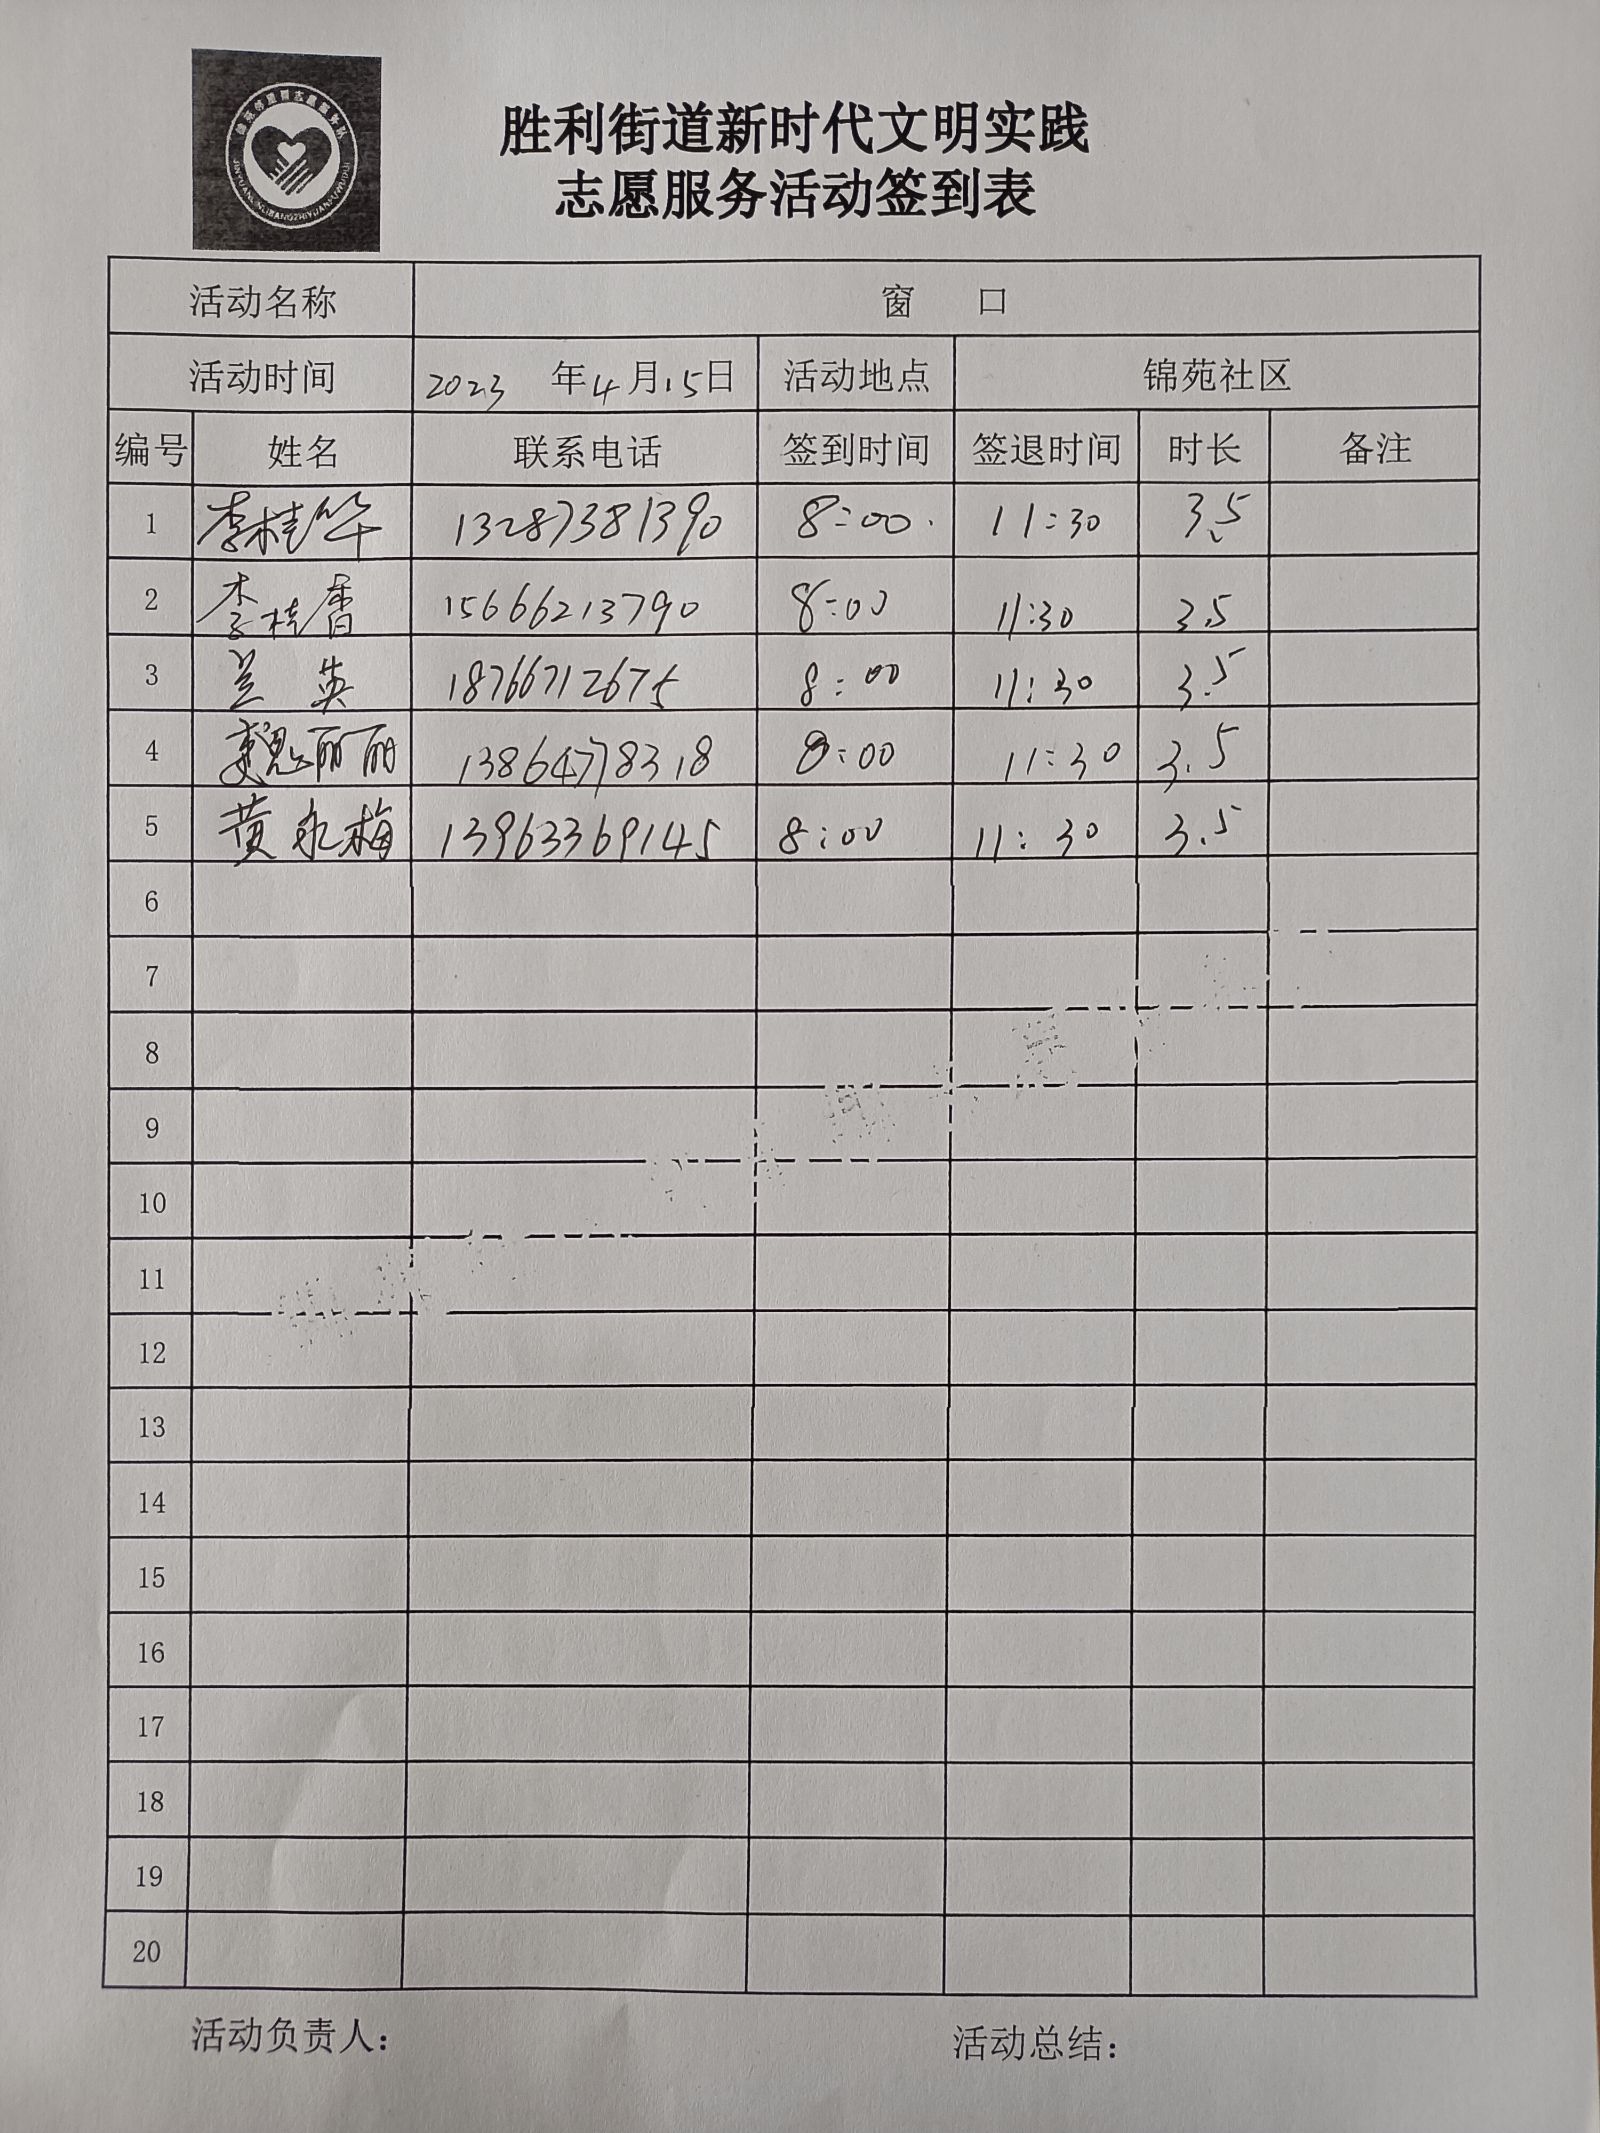 胜利街道新时代文明实践
志愿服务活动签到表
活动名称 窗 口
活动时间 2023 年 4 月 15 日 活动地点 锦苑社区
编号 姓名 联系电话 签到时间 签退时间 时长 备注
1 李桂华 13287381390 8:00 11:30 3.5
2 李桂香 15666213790 8:00 11:30 3.5
3 兰英 18766712675 8:00 11:30 3.5
4 魏丽丽 13864778318 8:00 11:30 3.5
5 黄永梅 13963369145 8:00 11:30 3.5
6
7
8
9
10
11
12
13
14
15
16
17
18
19
20
活动负责人： 活动总结：